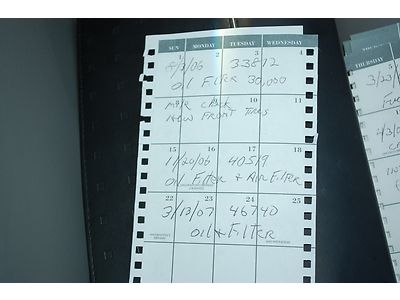 SUN MONDAY TUESDAY WEDNESDAY
1 2 3 4
8/3/06 33872
OIL FILTER 30,000
10 11
NEW FRONT TIRES
15 16 17 18
11/20/06 40519
OIL FILTER & AIR FILTER
22 23 24 25
3/13/07 46740
OIL & FILTER
THURSDAY
5
3/23/
4/3/0